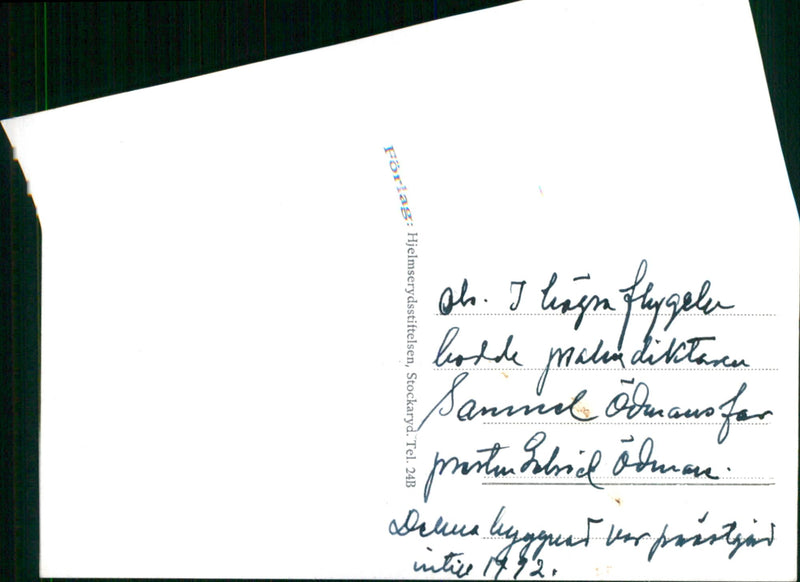 Förlag: Hjelmserydsstiftelsen, Stockaryd. Tel. 24B
I högra flygeln
bodde psalmdiktaren
Samuel Ödmans far
prosten Gabriel Ödman.
Denna byggnad var prästgård
intill 1792.